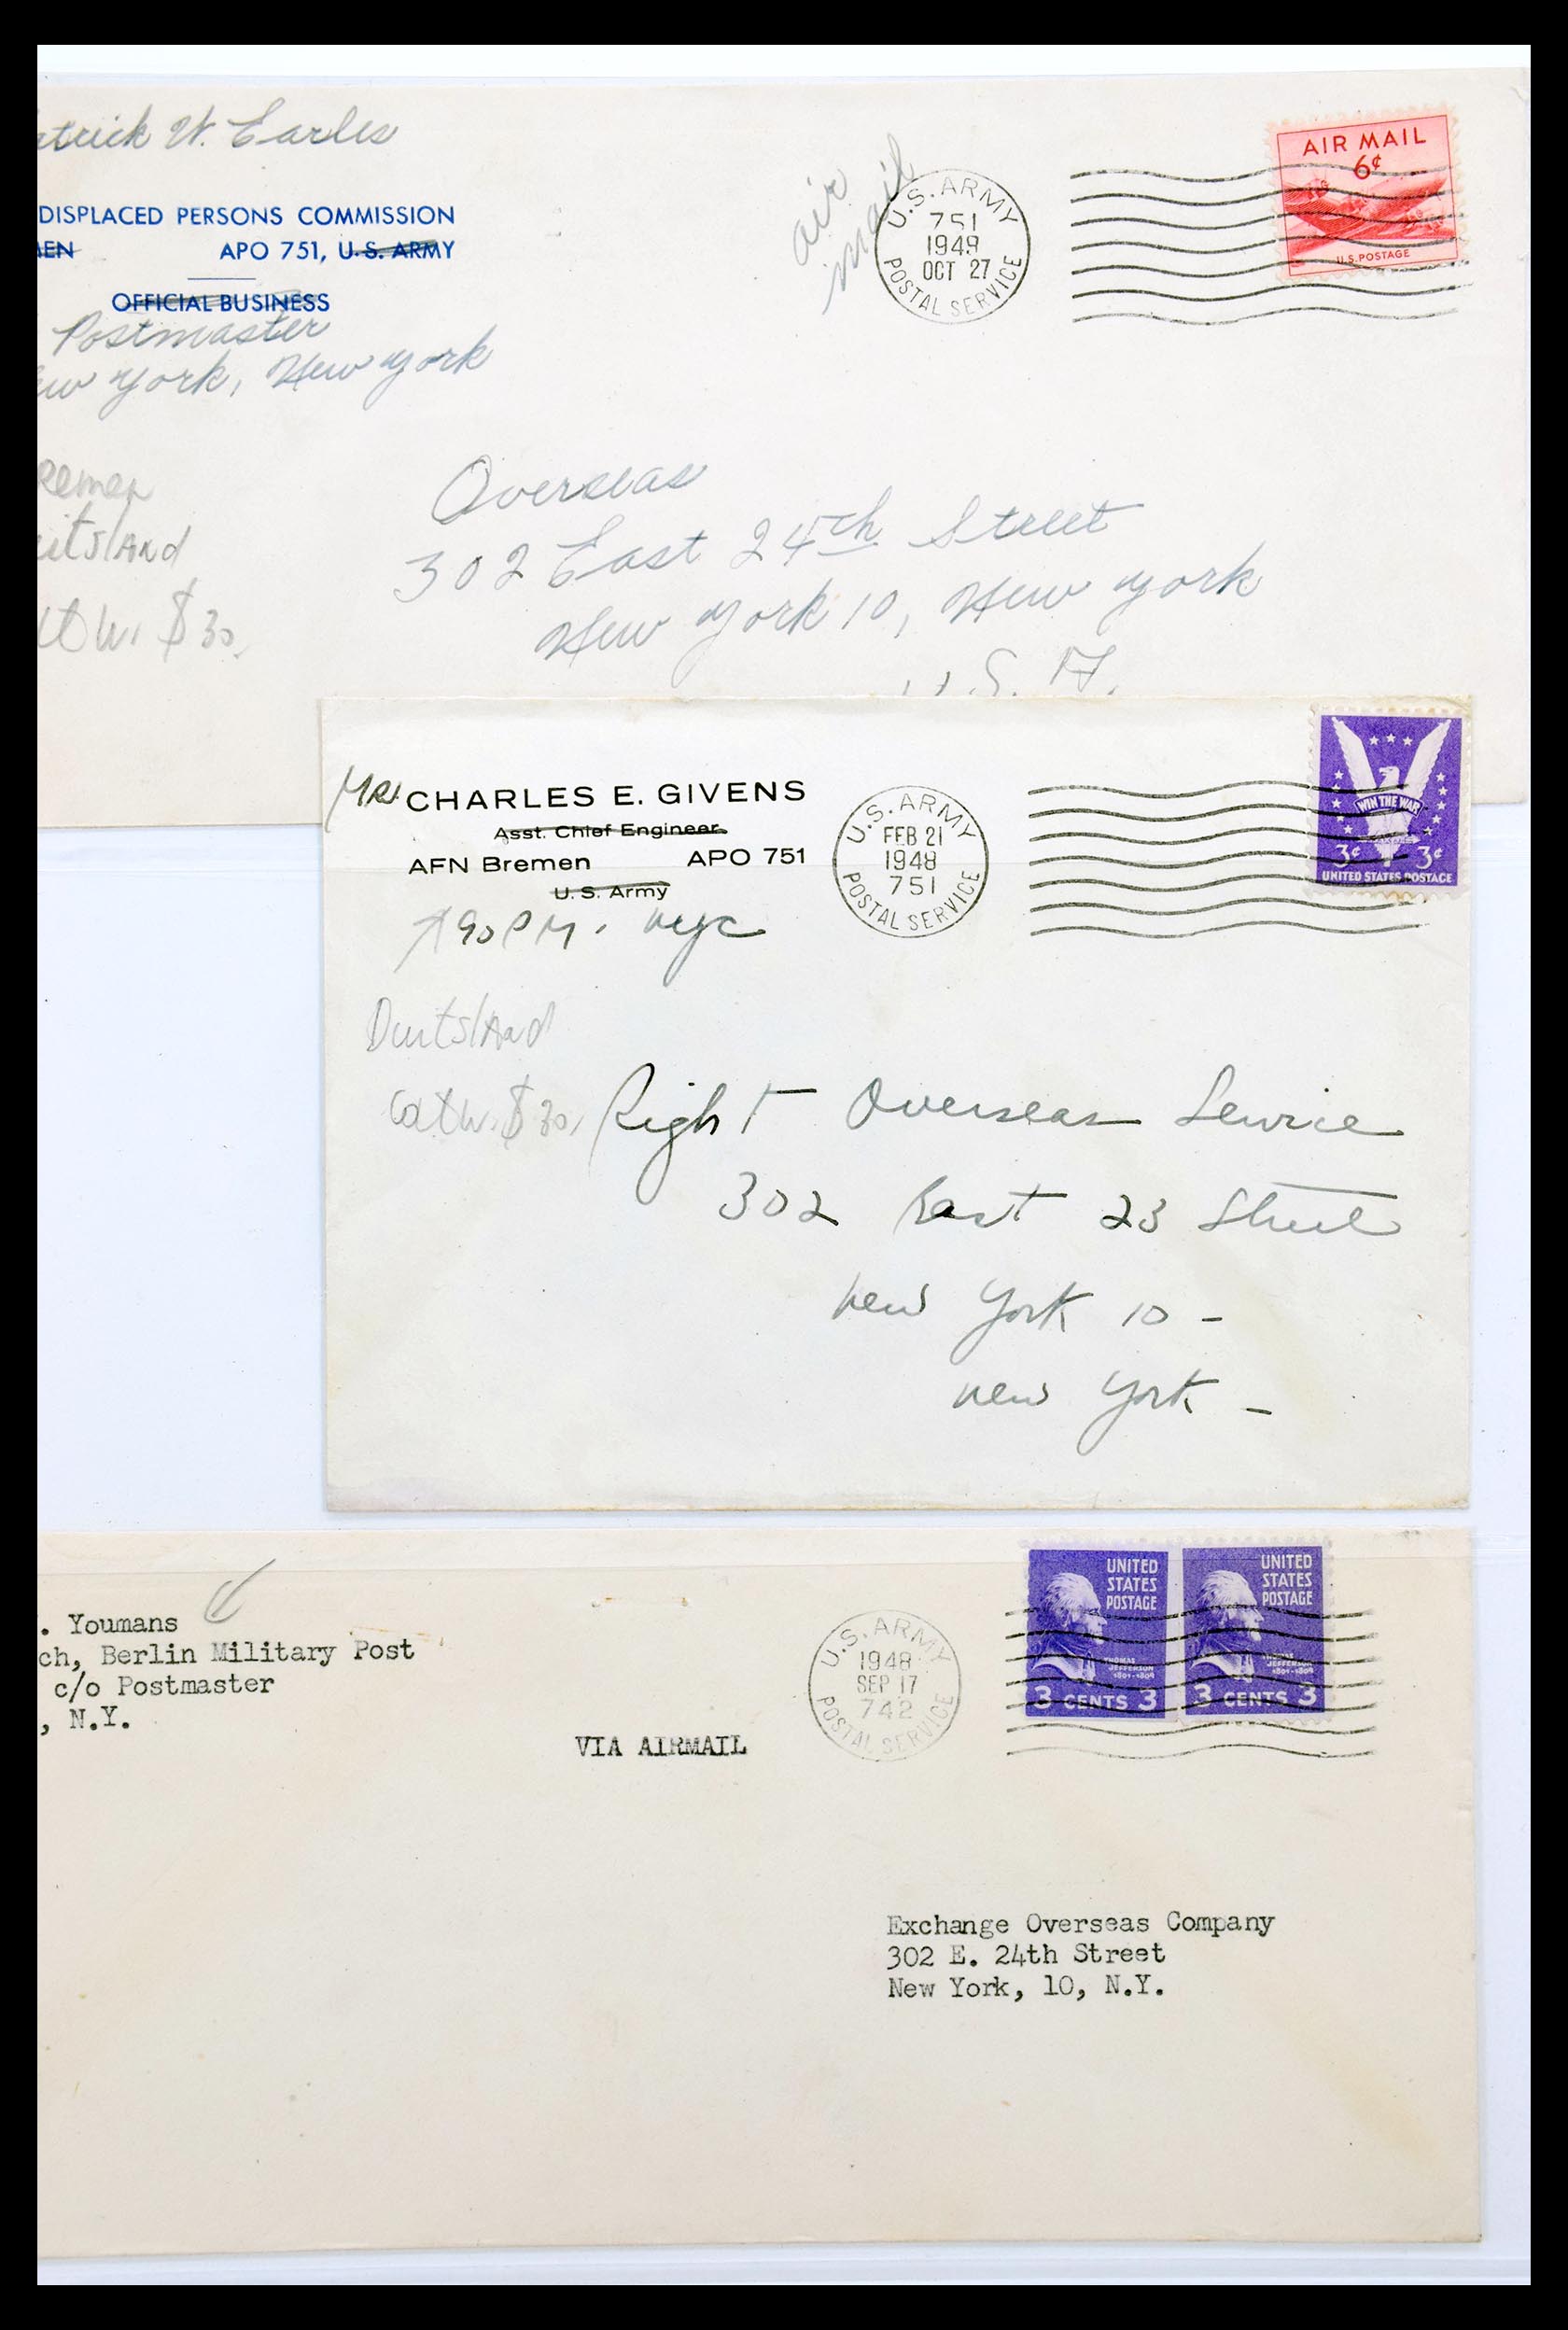 atrick W. Earles
DISPLACED PERSONS COMMISSION
MEN APO 751, U.S. ARMY
OFFICIAL BUSINESS
Postmaster
ew York, New York
air
mail
U.S. ARMY
751
1949
OCT 27
POSTAL SERVICE
AIR MAIL
6¢
U.S. POSTAGE
remen
uitsland
$30.
Overseas
302 East 24th Street
New York 10, New York
U.S.A.
CHARLES E. GIVENS
Asst. Chief Engineer
AFN Bremen APO 751
U. S. Army
% PM. NYC
U.S. ARMY
FEB 21
1948
751
POSTAL SERVICE
WIN THE WAR
3¢ 3¢
UNITED STATES POSTAGE
Duitsland
Catw. $30,
Right Overseas Service
302 East 23 Street
New York 10 -
New York -
. Youmans
ch, Berlin Military Post
c/o Postmaster
, N.Y.
VIA AIRMAIL
U.S. ARMY
1948
SEP 17
742
POSTAL SERVICE
UNITED
STATES
POSTAGE
THOMAS
JEFFERSON
1801-1809
3 CENTS 3
UNITED
STATES
POSTAGE
THOMAS
JEFFERSON
1801-1809
3 CENTS 3
Exchange Overseas Company
302 E. 24th Street
New York, 10, N.Y.